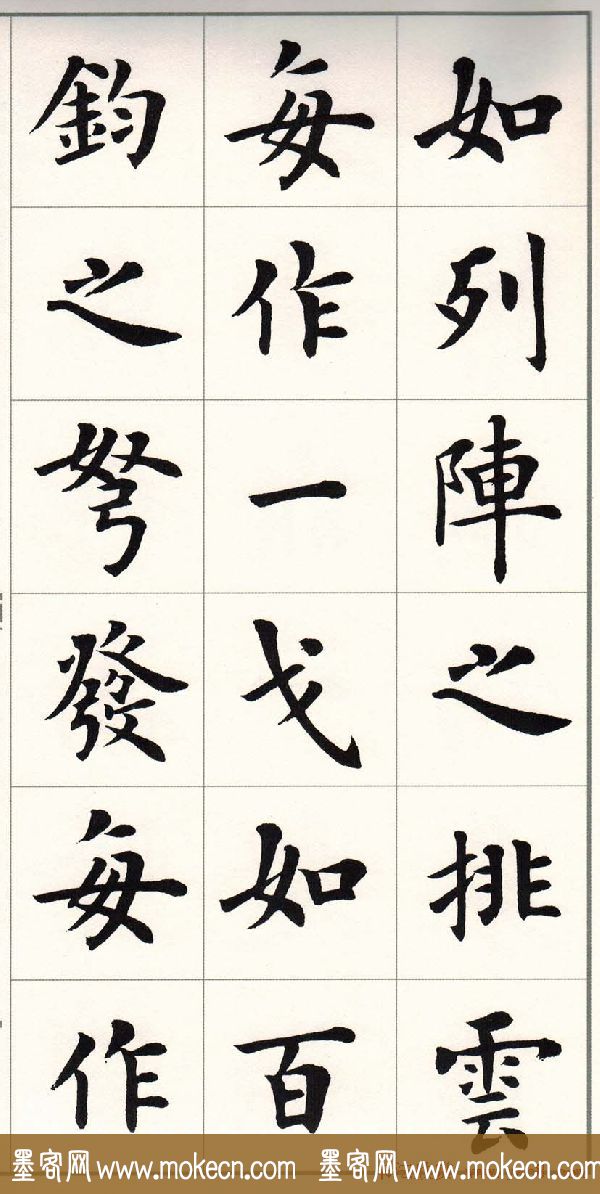 如列陣之排雲
每作一戈如百
鈞之弩發每作
墨客网 www.mokecn.com 墨客网 www.mokecn.com